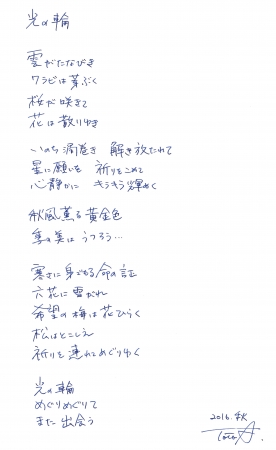 光の輪
雲がたなびき
ワラビは芽ぶく
桜が咲きて
花は散りゆき
いのち渦巻き 解き放たれて
星に願いを 祈りをこめて
心静かに キラキラ輝めく
秋風薫る黄金色
季の美は うつろう…
寒さに身ごもる命の証
六花に雪がれ
希望の梅は花ひらく
松はとこしえ
祈りを連れてめぐりゆく
光の輪
めぐりめぐりて
また出会う
2016. 秋